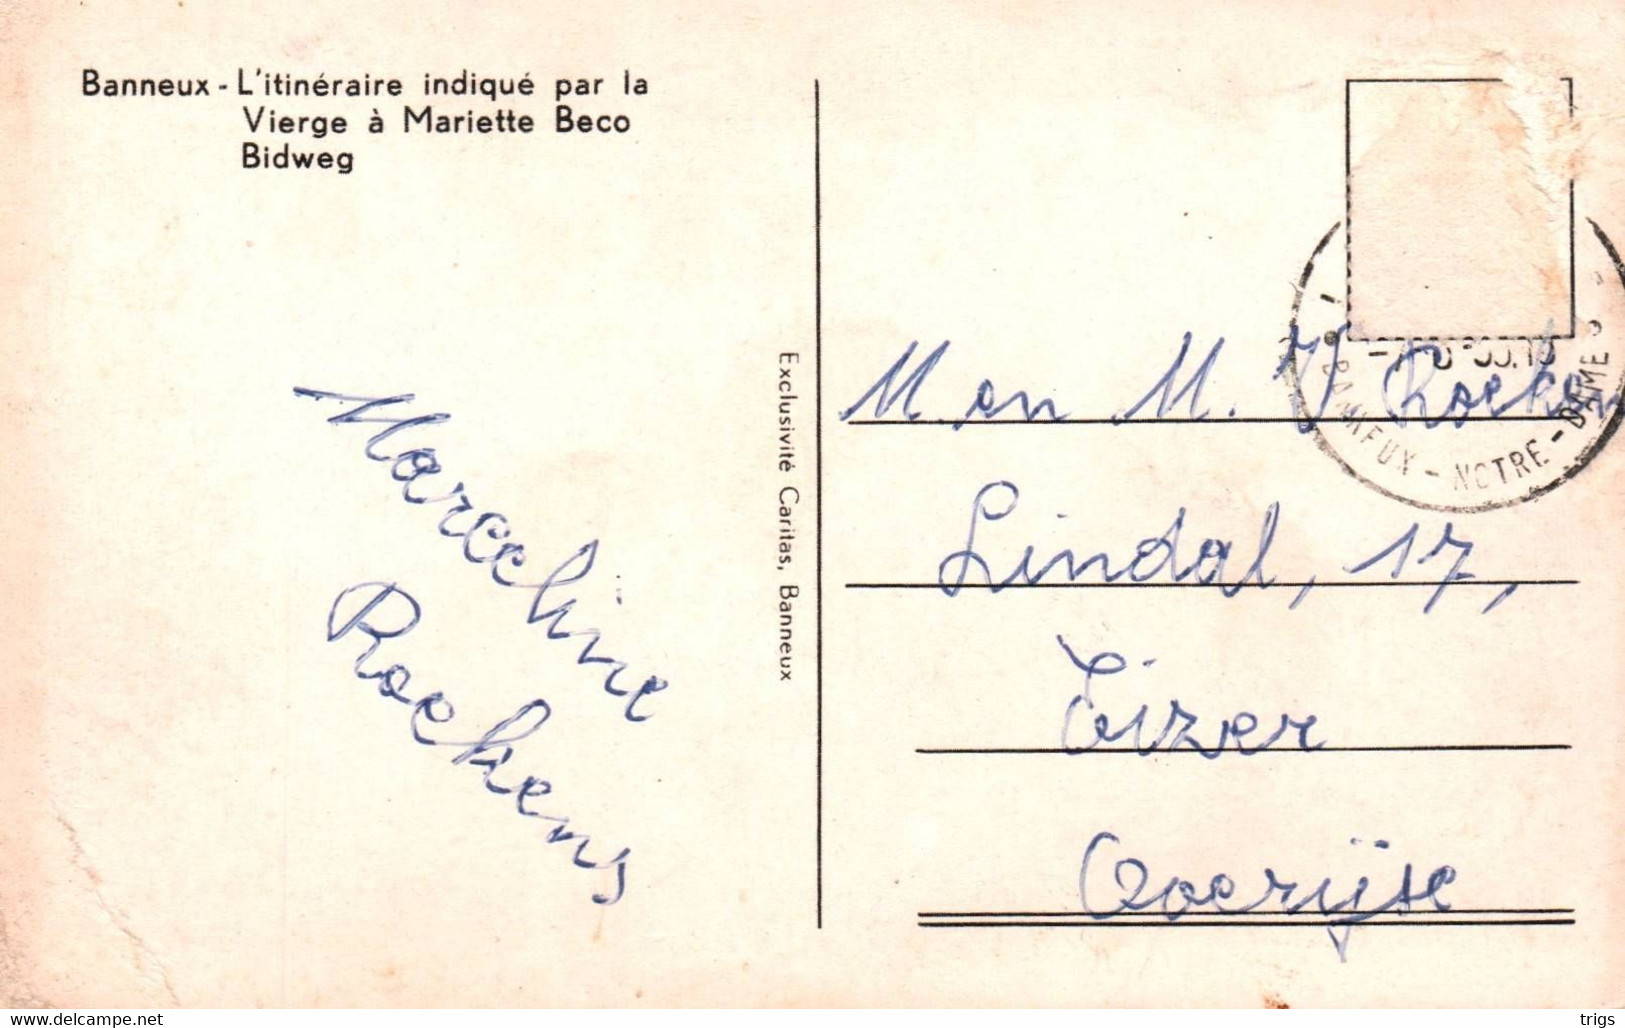 Banneux - L'itinéraire indiqué par la
Vierge à Mariette Beco
Bidweg
Marceline
Roekens
Exclusivité Caritas, Banneux
M. en M. V Roeken
Lindal, 17,
Eizer
Overijse
BANNEUX - NOTRE - DAME
www.delcampe.net
trigs